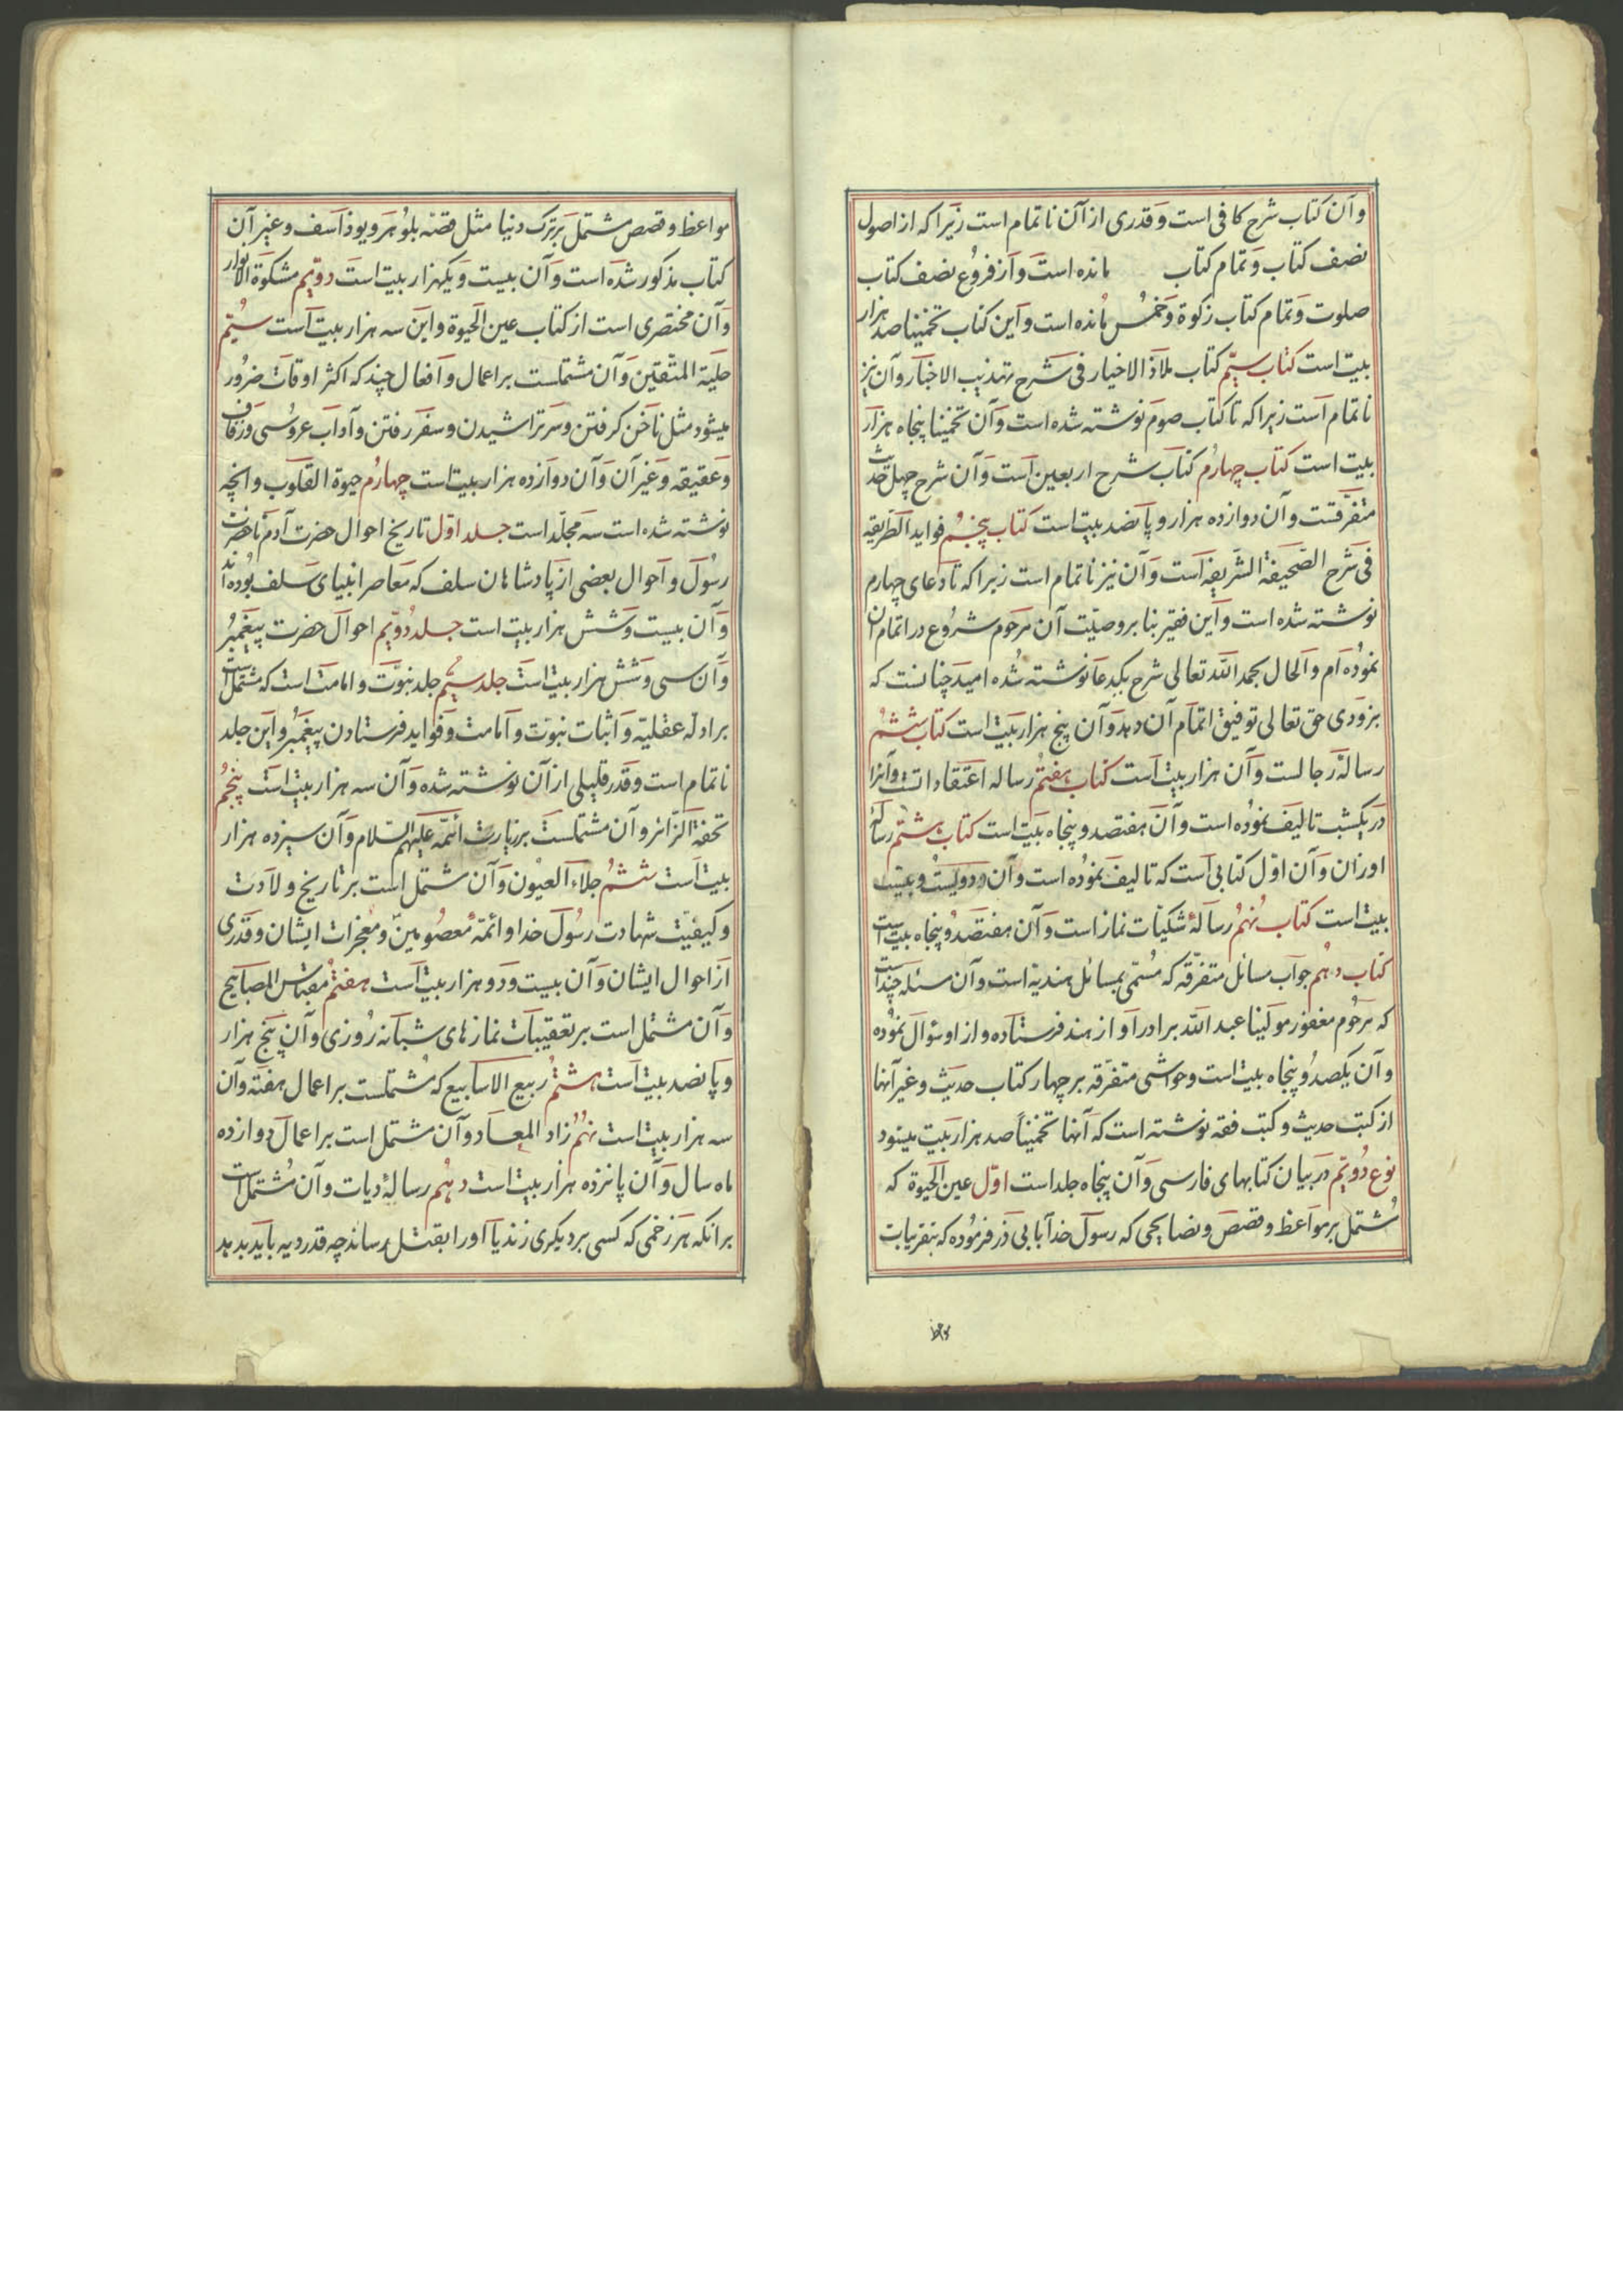 وآن کتاب شرح کافی است وقدری ازآن ناتمام است زیرا که از اصول
نصف کتاب وتمام کتاب مانده است واز فروع نصف کتاب
صلوت وتمام کتاب زکوة وخمس مانده است واین کتاب تخمینا صد هزار
بیت است کتاب سیّم کتاب ملاذ الاخیار فی شرح تهذیب الاخبار وآن نیز
ناتمام است زیرا که تا کتاب صوم نوشته شده است وآن تخمینا پنجاه هزار
بیت است کتاب چهارم کتاب شرح اربعین است وآن شرح چهل حدیث
متفرّقست وآن دوازده هزار وپانصد بیت است کتاب پنجم فواید الطریقه
فی شرح الصحیفة الشریفه است وآن نیز ناتمام است زیرا که تا دعای چهارم
نوشته شده است واین فقیر بنا بر وصیّت آن مرحوم شروع در اتمام آن
نموده ام والحال بحمد الله تعالی شرح یکدعا نوشته شده امید چنانست که
بزودی حق تعالی توفیق اتمام آن دهد وآن پنج هزار بیت است کتاب ششم
رسالهٔ رجالست وآن هزار بیت است کتاب هفتم رساله اعتقادات است وآنرا
در یکشب تالیف نموده است وآن هفتصد وپنجاه بیت است کتاب هشتم رسالهٔ
اوزان وآن اوّل کتابی است که تالیف نموده است وآن دویست وبیست
بیت است کتاب نهم رسالهٔ شکیّات نماز است وآن هفتصد وپنجاه بیت است
کتاب دهم جواب مسائل متفرّقه که مسمّی بمسائل هندیه است وآن مسئله چند است
که مرحوم مغفور مولینا عبد الله برادر او از هند فرستاده واز او سؤال نموده
وآن یکصد وپنجاه بیت است وحواشی متفرّقه بر چهار کتاب حدیث وغیر آنها
از کتب حدیث وکتب فقه نوشته است که آنها تخمیناً صد هزار بیت میشود
نوع دویّم در بیان کتابهای فارسی وآن پنجاه جلد است اوّل عین الحیوة که
مشتمل بر مواعظ وقصص ونصایحی که رسول خدا بابی ذر فرموده که بتقریبات
مواعظ وقصص مشتمل بر ترک دنیا مثل قصّه بلوهر ویوذاسف وغیر آن
کتاب مذکور شده است وآن بیست ویکهزار بیت است دویّم مشکوة الانوار
وآن مختصری است از کتاب عین الحیوة واین سه هزار بیت است سیّم
حلیة المتّقین وآن مشتملست بر اعمال وافعال چند که اکثر اوقات ضرور
میشود مثل ناخن کرفتن وسر تراشیدن وسفر رفتن وآداب عروسی وزفاف
وعقیقه وغیر آن وآن دوازده هزار بیت است چهارم حیوة القلوب وانچه
نوشته شده است سه مجلّد است جلد اوّل تاریخ احوال حضرت آدم تا حضرت
رسول واحوال بعضی از پادشاهان سلف که معاصر انبیای سلف بوده اند
وآن بیست وشش هزار بیت است جلد دویّم احوال حضرت پیغمبر
وآن سی وشش هزار بیت است جلد سیّم جلد نبوّت وامامت است که مشتمل است
بر ادله عقلیّه واثبات نبوّت وامامت وفواید فرستادن پیغمبر واین جلد
ناتمام است وقدر قلیلی از آن نوشته شده وآن سه هزار بیت است پنجم
تحفة الزائر وآن مشتملست بر زیارت ائمّه علیهم السلام وآن سیزده هزار
بیت است ششم جلاء العیون وآن مشتمل است بر تاریخ ولادت
وکیفیّت شهادت رسول خدا وائمّه معصومین ومعجزات ایشان وقدری
از احوال ایشان وآن بیست ودو هزار بیت است هفتم مقباس المصابیح
وآن مشتمل است بر تعقیبات نمازهای شبانه روزی وآن پنج هزار
وپانصد بیت است هشتم ربیع الاسابیع که مشتملست بر اعمال هفته وآن
سه هزار بیت است نهم زاد المعاد وآن مشتمل است بر اعمال دوازده
ماه سال وآن پانزده هزار بیت است دهم رسالهٔ دیات وآن مشتمل است
برانکه هر زخمی که کسی بر دیکری زند یا اورا بقتل رساند چه قدر دیه باید بدهد